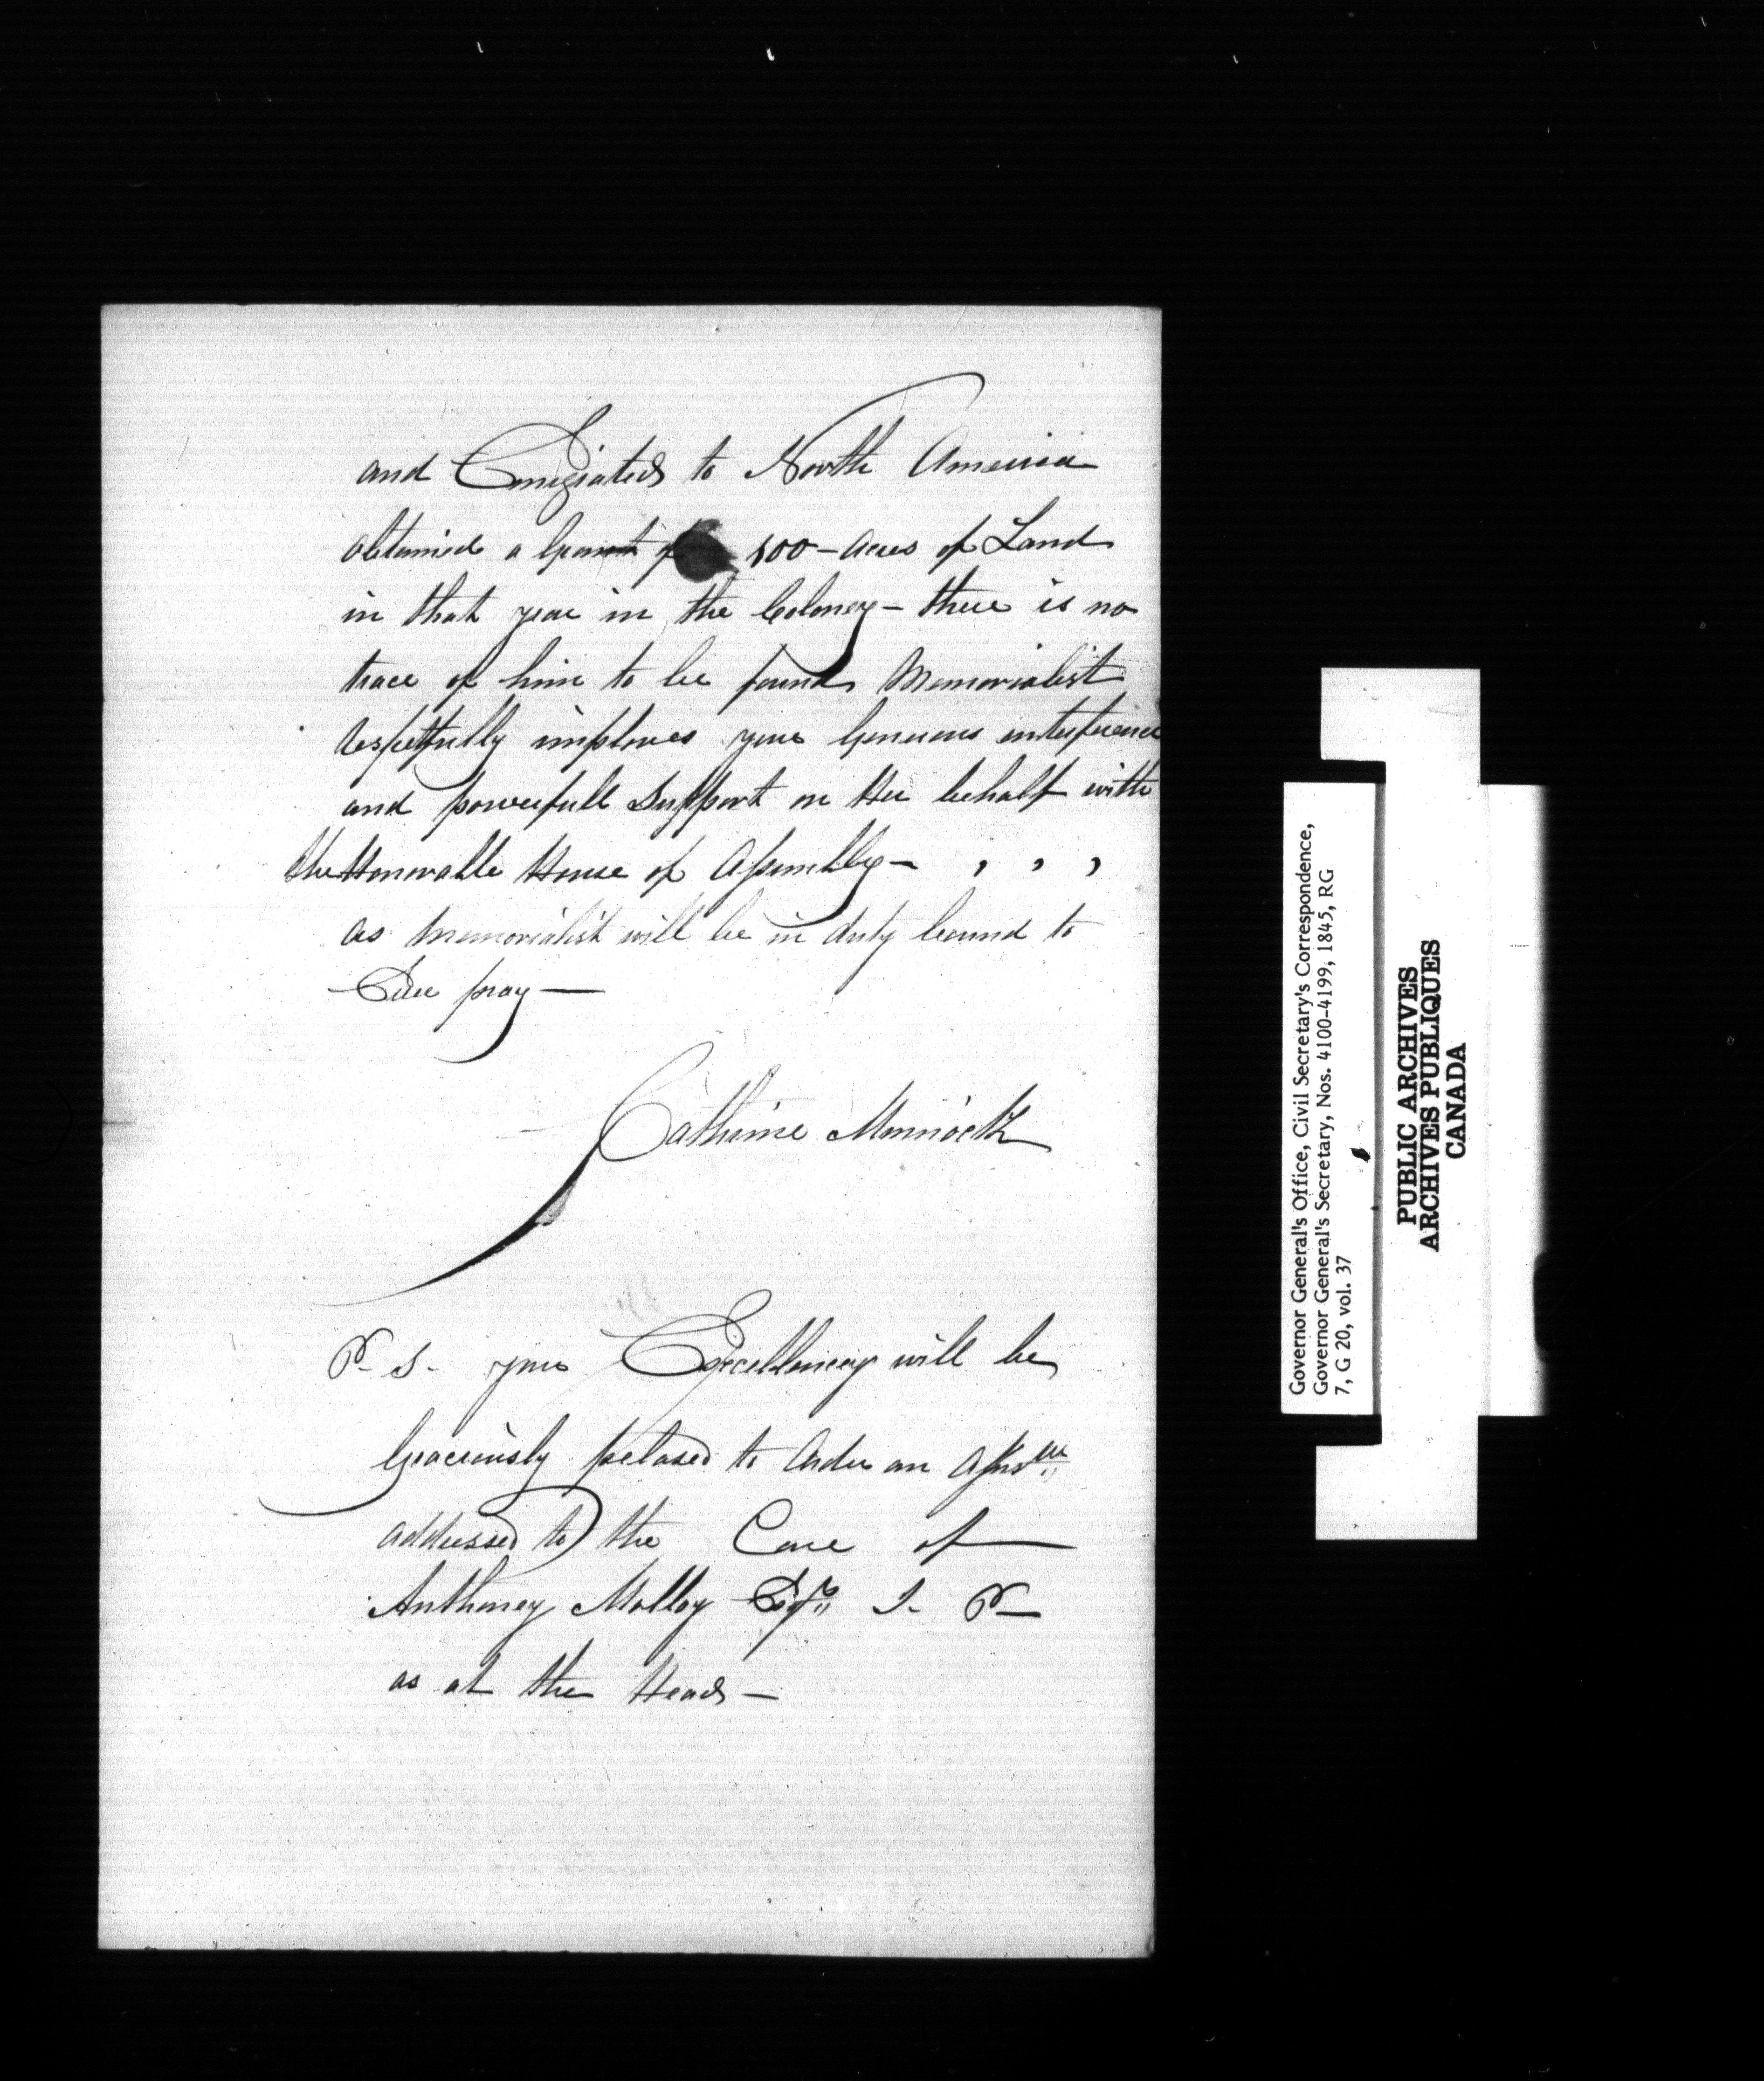 and Emigrated to North America
obtained a Grant of 100 - Acres of Land
in that year in the Coloney - there is no
trace of him to be found Memorialist
respetfully implores your Generous interference
and powerfull Support on Her behalf with
the Honorable House of Assembly - , , ,
as Memorialist will be in duty bound to
Ever pray —
Catherine Minnock
P. S. your Excellencey will be
Graceiously pelased to Order an Answer
addressed to the Care of
Anthoney Molloy Esqr. J. P—
as at the Head —
Governor General's Office, Civil Secretary's Correspondence,
Governor General's Secretary, Nos. 4100-4199, 1845, RG
7, G 20, vol. 37
PUBLIC ARCHIVES
ARCHIVES PUBLIQUES
CANADA